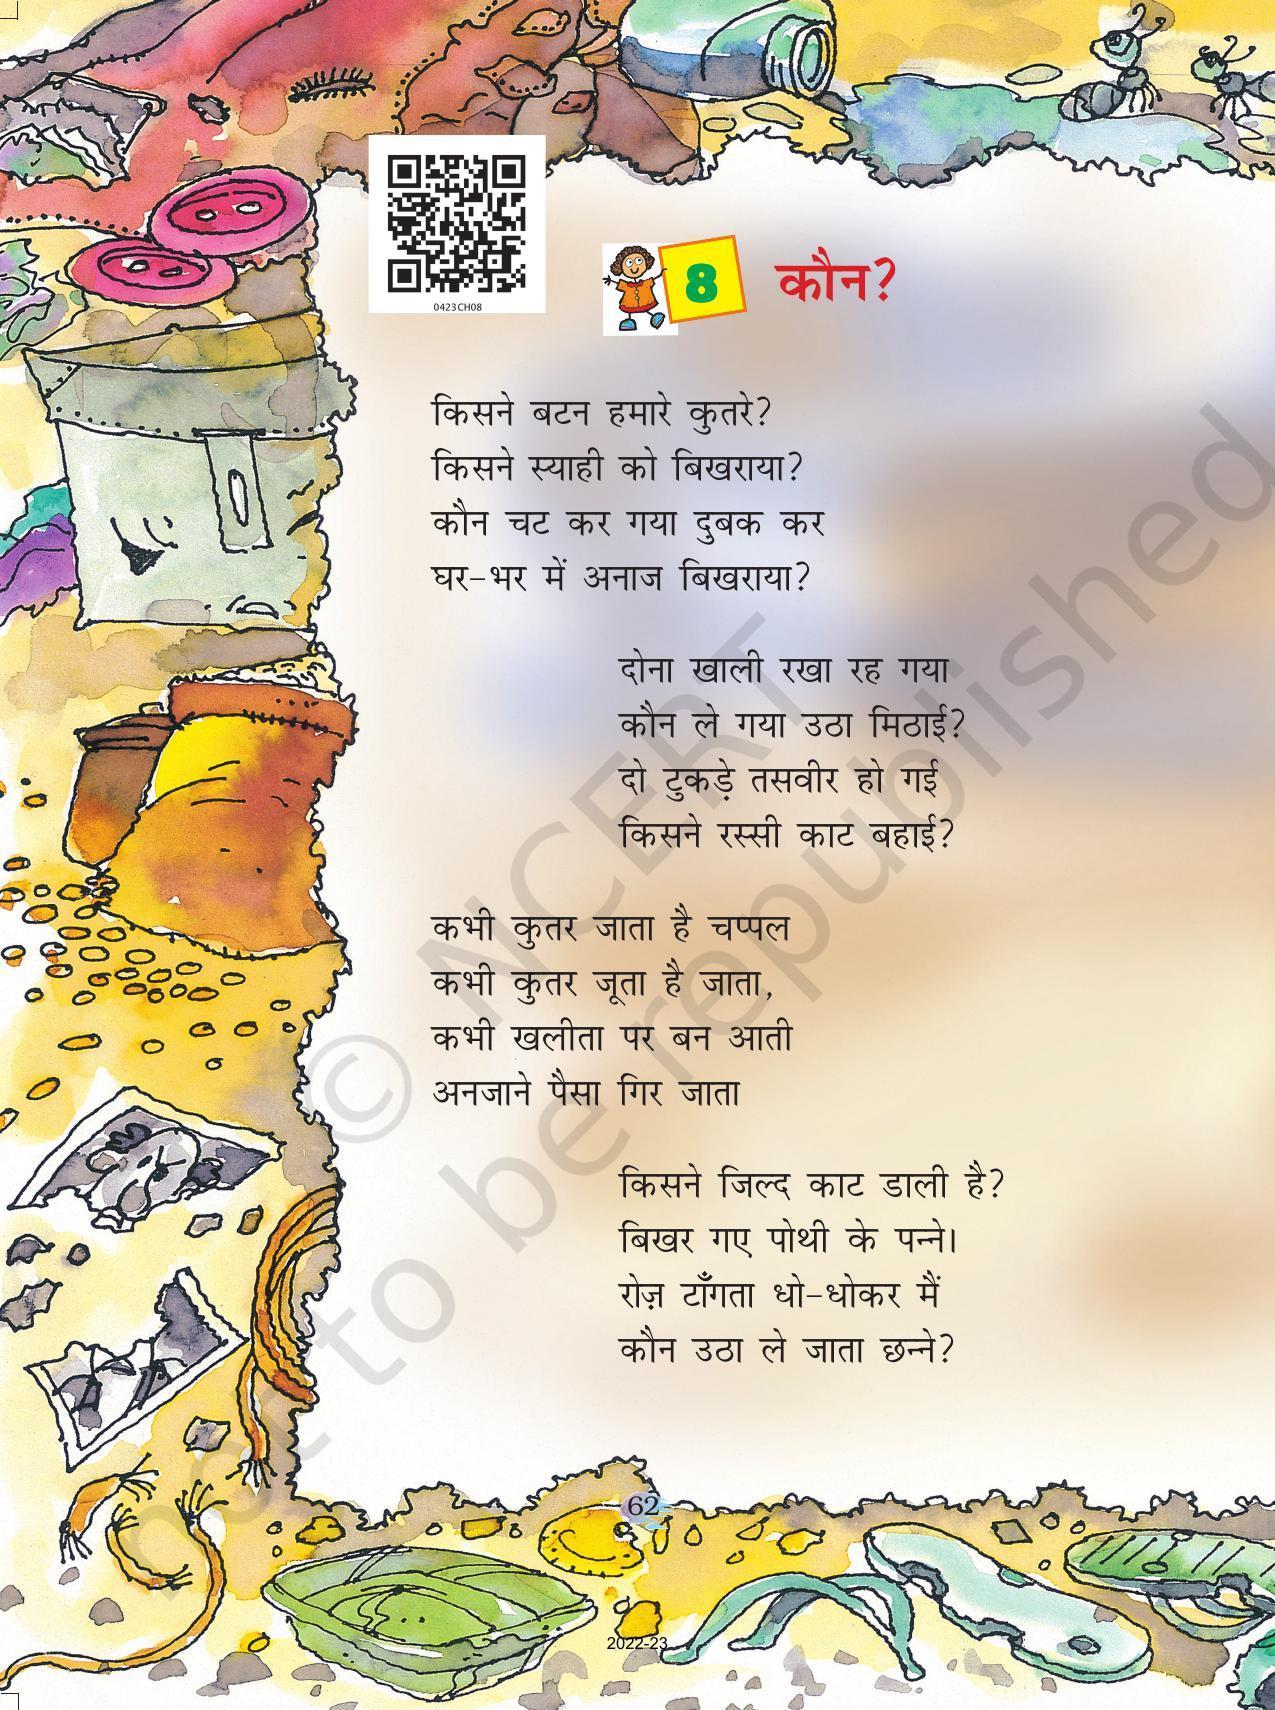 0423CH08
8 कौन?
किसने बटन हमारे कुतरे?
किसने स्याही को बिखराया?
कौन चट कर गया दुबक कर
घर-भर में अनाज बिखराया?
दोना खाली रखा रह गया
कौन ले गया उठा मिठाई?
दो टुकड़े तसवीर हो गई
किसने रस्सी काट बहाई?
कभी कुतर जाता है चप्पल
कभी कुतर जूता है जाता,
कभी खलीता पर बन आती
अनजाने पैसा गिर जाता
किसने जिल्द काट डाली है?
बिखर गए पोथी के पन्ने।
रोज़ टाँगता धो-धोकर मैं
कौन उठा ले जाता छन्ने?
© NCERT
not to be republished
62
2022-23